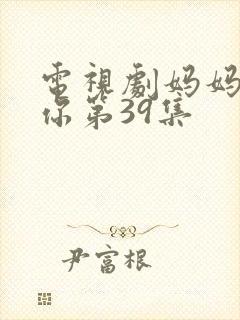 電視劇妈妈
你第39集
尹富根